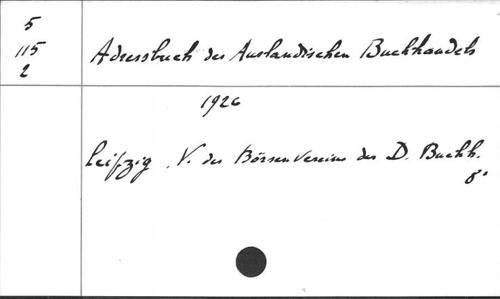 5
115
2
Adressbuch des Ausländischen Buchhandels
1926
Leipzig, V. des Börsenvereins der D. Buchh.
8°